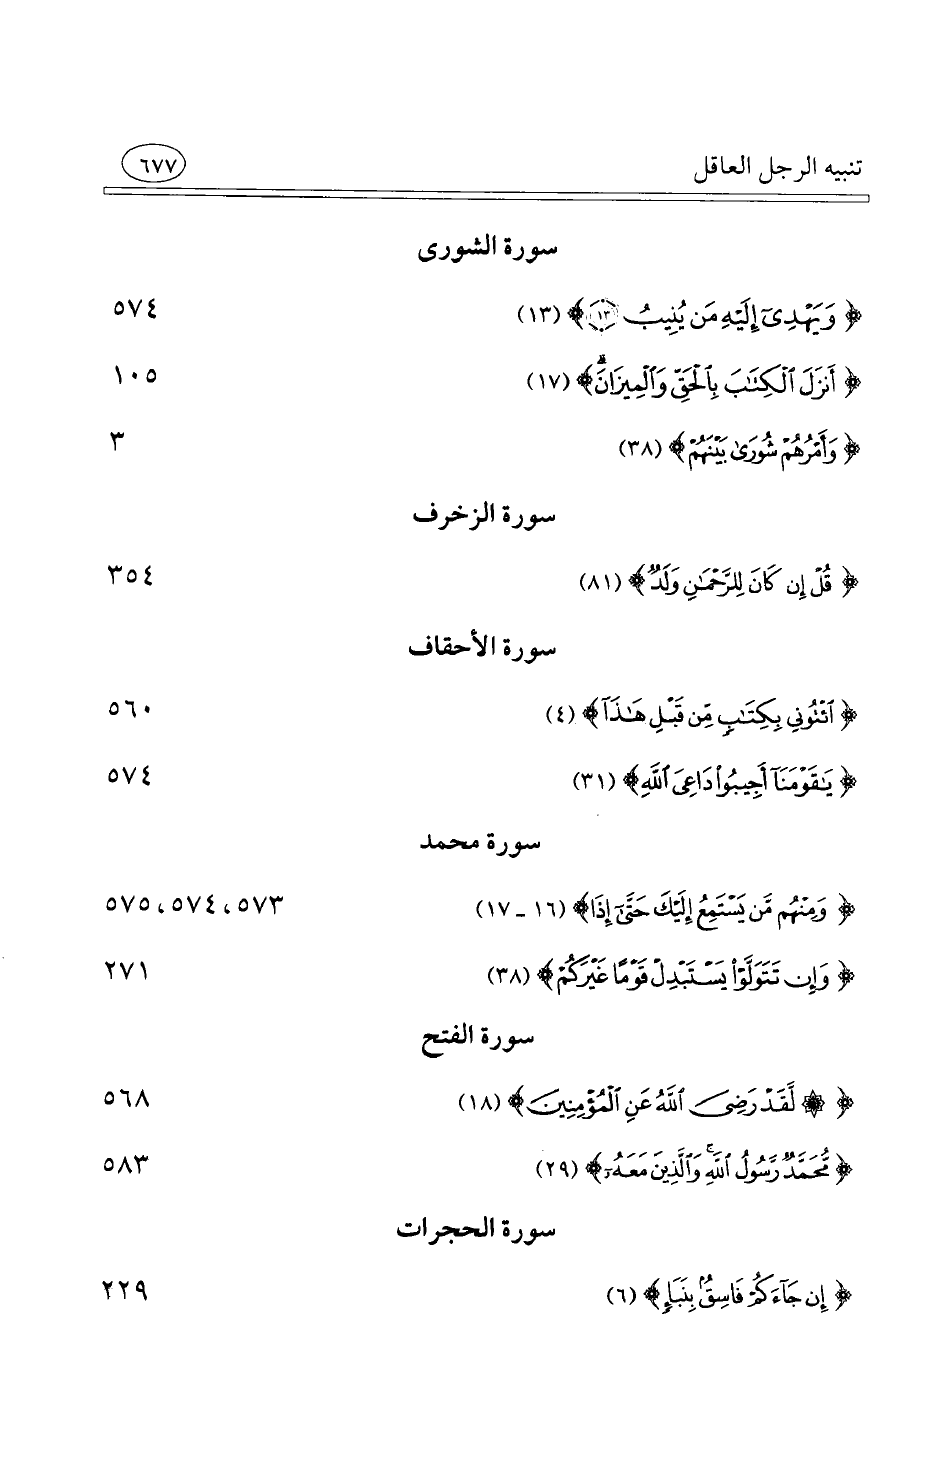 تنبيه الرجل العاقل ٦٧٧
سورة الشورى
﴿ وَيَهْدِىٓ إِلَيْهِ مَن يُنِيبُ ١٣ ﴾ (١٣) ٥٧٤
﴿ أَنزَلَ ٱلْكِتَٰبَ بِٱلْحَقِّ وَٱلْمِيزَانَۗ ﴾ (١٧) ١٠٥
﴿ وَأَمْرُهُمْ شُورَىٰ بَيْنَهُمْ ﴾ (٣٨) ٣
سورة الزخرف
﴿ قُلْ إِن كَانَ لِلرَّحْمَٰنِ وَلَدٌ ﴾ (٨١) ٣٥٤
سورة الأحقاف
﴿ ٱئْتُونِي بِكِتَٰبٍ مِّن قَبْلِ هَٰذَآ ﴾ (٤) ٥٦٠
﴿ يَٰقَوْمَنَآ أَجِيبُوا۟ دَاعِىَ ٱللَّهِ ﴾ (٣١) ٥٧٤
سورة محمد
﴿ وَمِنْهُم مَّن يَسْتَمِعُ إِلَيْكَ حَتَّىٰٓ إِذَا ﴾ (١٦ - ١٧) ٥٧٣، ٥٧٤، ٥٧٥
﴿ وَإِن تَتَوَلَّوْا۟ يَسْتَبْدِلْ قَوْمًا غَيْرَكُمْ ﴾ (٣٨) ٢٧١
سورة الفتح
﴿ ۞ لَّقَدْ رَضِىَ ٱللَّهُ عَنِ ٱلْمُؤْمِنِينَ ﴾ (١٨) ٥٦٨
﴿ مُّحَمَّدٌ رَّسُولُ ٱللَّهِۚ وَٱلَّذِينَ مَعَهُۥٓ ﴾ (٢٩) ٥٨٣
سورة الحجرات
﴿ إِن جَآءَكُمْ فَاسِقٌۢ بِنَبَإٍ ﴾ (٦) ٢٢٩